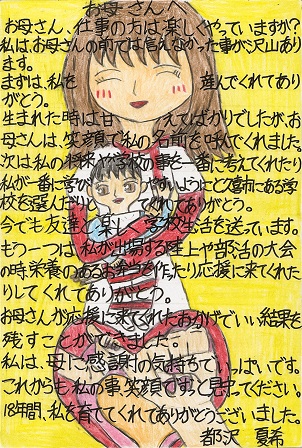 お母さんへ
お母さん、仕事の方は楽しくやっていますか?
私は、お母さんの前では言えなかった事が沢山あり
ます。
まずは、私を 産んでくれてあり
がとう。
生まれた時は甘 えてばかりでしたが、お
母さんは、笑顔で私の名前を呼んでくれました。
次は私の将来や学校の事を一番に考えてくれたり
私が一番に学び すいようにと 市にある学
校を選んだり くれてありがとう。
今でも友達と楽しい学校生活を送っています。
もう一つは、私が出場する陸上や部活の大会
の時、栄養のあるお弁当を作ったり応援に来てくれた
りしてくれてありがとう。
お母さんが応援に来てくれたおかげでいい結果を
残すことができました。
私は、母に感謝の気持ちでいっぱいです。
これからも私の事、笑顔でずっと見守ってください。
18年間、私を育ててくれてありがとうございました。
都沢 夏希